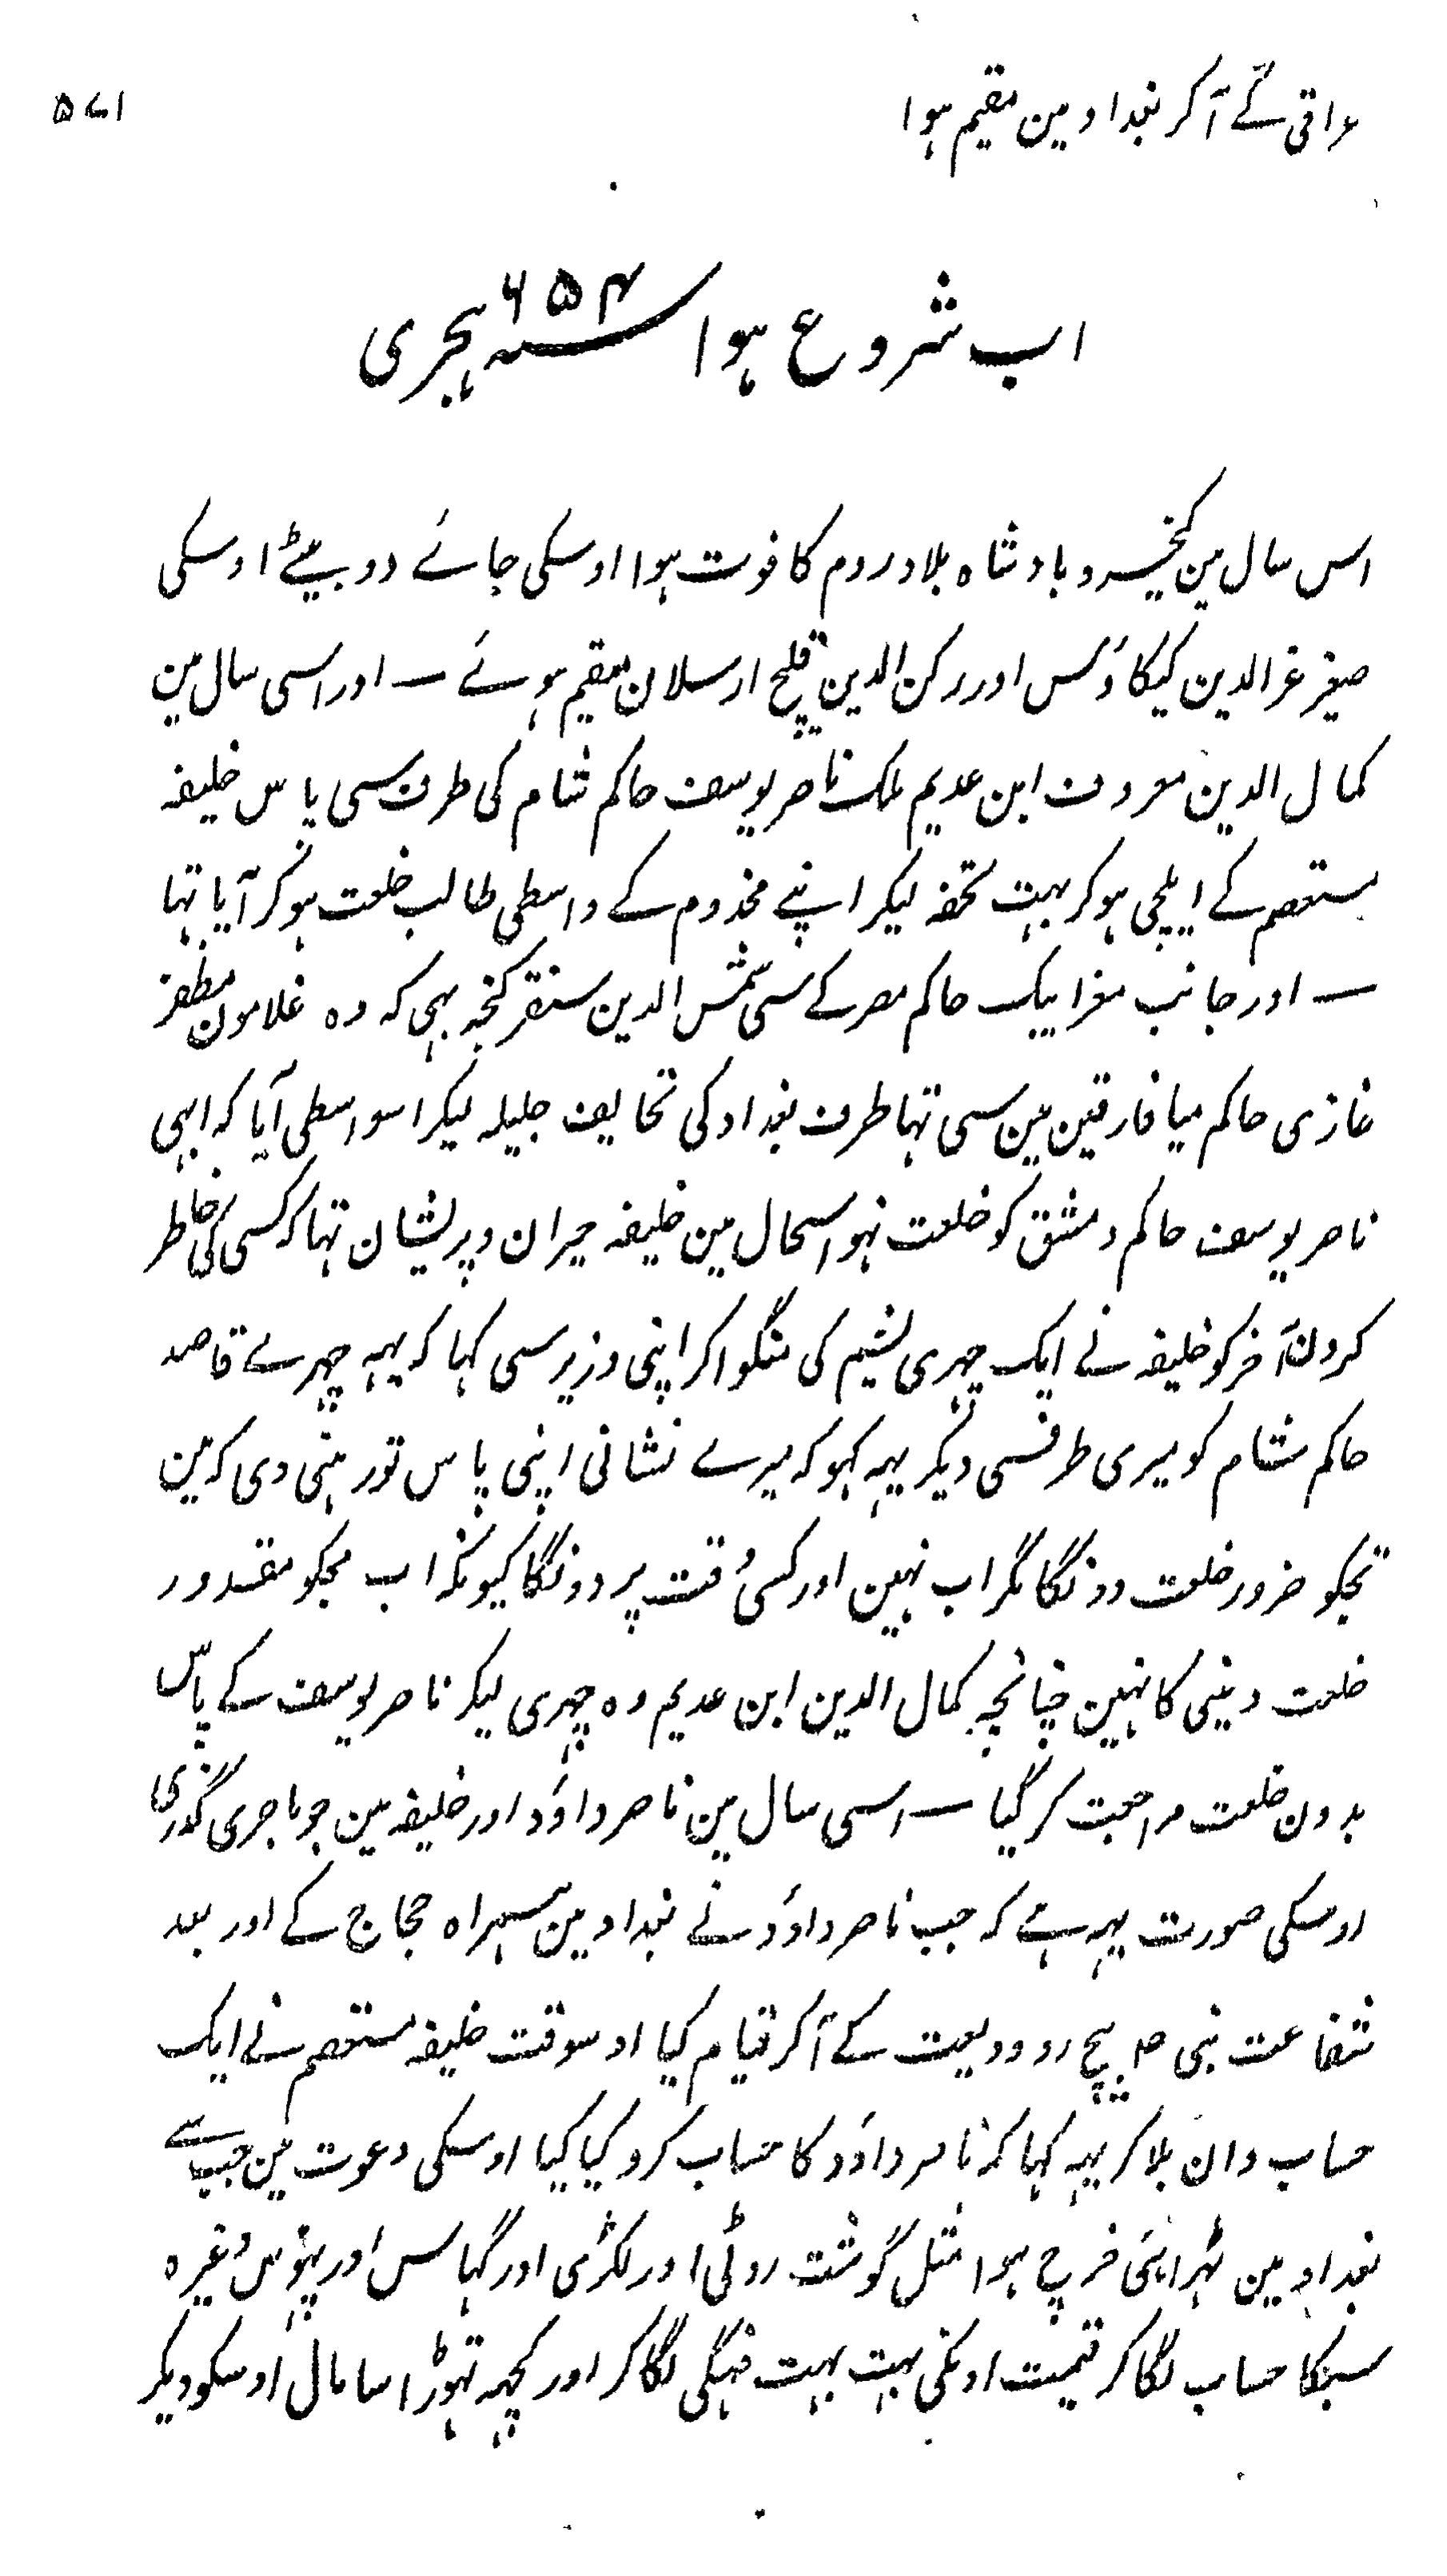 عراقی کے آکر بغداد مین مقیم ہوا
۵۷۱
اب شروع ہوا سنہ ۶۵۴ ہجری
اس سال مین کیخسرو بادشاہ بلاد روم کا فوت ہوا اوسکی جائے دو بیٹے اوسکی
صغیر عزالدین کیکاؤس اور رکن الدین قلیج ارسلان مقیم ہوئے ـ اور اسی سال مین
کمال الدین معروف ابن عدیم ملک ناصر یوسف حاکم شام کی طرف سی پاس خلیفہ
مستعصم کے ایلچی ہوکر بہت تحفہ لیکر اپنے مخدوم کے واسطی طالب خلعت ہوکر آیا تہا
ـ اور جانب معزایبک حاکم مصر کے سی شمس الدین سنقر کنجہ بہی کہ وہ غلامون مظفر
غازی حاکم میافارقین مین سی تہا طرف بغداد کی تحایف جلیلہ لیکر اسواسطی آیا کہ ابہی
ناصر یوسف حاکم دمشق کو خلعت نہو اسحال مین خلیفہ حیران و پریشان تہا کہ کسی کی خاطر
کرون آخر کو خلیفہ نے ایک چہری یشیم کی منگواکر اپنی وزیر سی کہا کہ یہہ چہرے قاصد
حاکم شام کو میری طرفسی دیکر یہہ کہو کہ میرے نشانی اپنی پاس تو رہنی دی کہ مین
تجکو ضرور خلعت دونگا مگر اب نہین اور کسی وقت پر دونگا کیونکہ اب مجکو مقدور
خلعت دینی کا نہین چنانچہ کمال الدین ابن عدیم وہ چہری لیکر ناصر یوسف کے پاس
بدون خلعت مراجعت کر گیا ـ اسی سال مین ناصر داؤد اور خلیفہ مین جو ماجری گذری
اوسکی صورت یہہ ہے کہ جب ناصر داؤد نے بغداد مین ہمراہ حجاج کے اور بعد
شفاعت نبی صلعم بیچ رد ودیعت کے آکر قیام کیا اوسوقت خلیفہ مستعصم نے ایک
حساب دان بلاکر یہہ کہا کہ ناصر داؤد کا حساب کرو کیا کیا اوسکی دعوت مین جب سے
بغداد مین ٹہرا ہی خرچ ہوا مثل گوشت روٹی اور لکڑی اور گہاس اور پہوس وغیرہ
سبکا حساب لگاکر قیمت اونکی بہت بہت مہنگی لگاکر اور کچہہ تہوڑا سا مال اوسکو دیکر